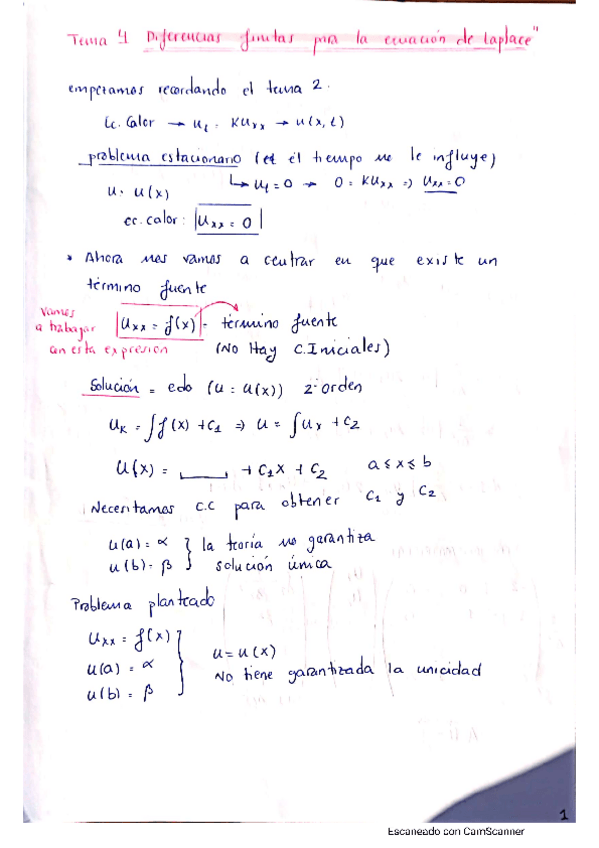 Tema 4 Diferencias finitas para la ecuación de Laplace"
empezamos recordando el tema 2.
Ec. Calor → u_t = K u_xx → u(x,t)
problema estacionario (el tiempo no le influye)
↳ u_t = 0 → 0 = K u_xx ⇒ u_xx = 0
u = u(x)
ec. calor: |u_xx = 0|
* Ahora nos vamos a centrar en que existe un
término fuente
vamos a trabajar con esta expresion
|u_xx = f(x)| → término fuente
(No Hay C.Iniciales)
Solución = edo (u = u(x)) 2º orden
u_x = ∫f(x) + C1 ⇒ u = ∫u_x + C2
u(x) = ____ + C1x + C2 a ≤ x ≤ b
Necesitamos C.C para obtener C1 y C2
u(a) = α } la teoría no garantiza
u(b) = β } solución única
Problema planteado
u_xx = f(x)
u(a) = α
u(b) = β
u = u(x)
No tiene garantizada la unicidad
1
Escaneado con CamScanner